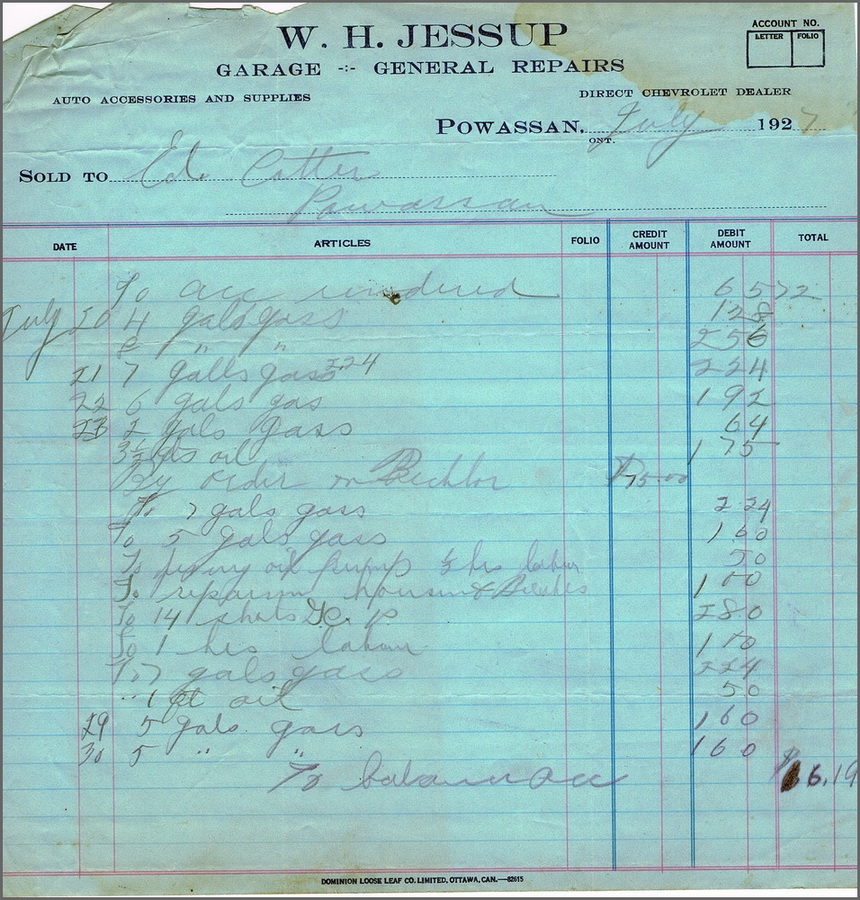 W. H. JESSUP
GARAGE -:- GENERAL REPAIRS
ACCOUNT NO.
LETTER FOLIO
AUTO ACCESSORIES AND SUPPLIES DIRECT CHEVROLET DEALER
POWASSAN, ONT. July 1927
SOLD TO Ed. Cotter
Powassan
DATE ARTICLES FOLIO CREDIT AMOUNT DEBIT AMOUNT TOTAL
To acc rendered 65 72
July 20 4 gals gass 1 28
8 " " 2 56
21 7 galls gass 224 2 24
22 6 gals gas 1 92
23 2 gals gass 64
3½ qts oil 1 75
By order on $75.00
To 7 gals gass 2 24
To 5 gals gass 1 60
To oil pump ½ hrs labour 50
To 1 00
To 14 shots 2 80
To 1 hrs labour 1 00
To 7 gals gass 2 24
" 1 qt oil 50
29 5 gals. gass 1 60
30 5 " " 1 60
To balance acc $ 6.19
DOMINION LOOSE LEAF CO. LIMITED, OTTAWA, CAN.—62615